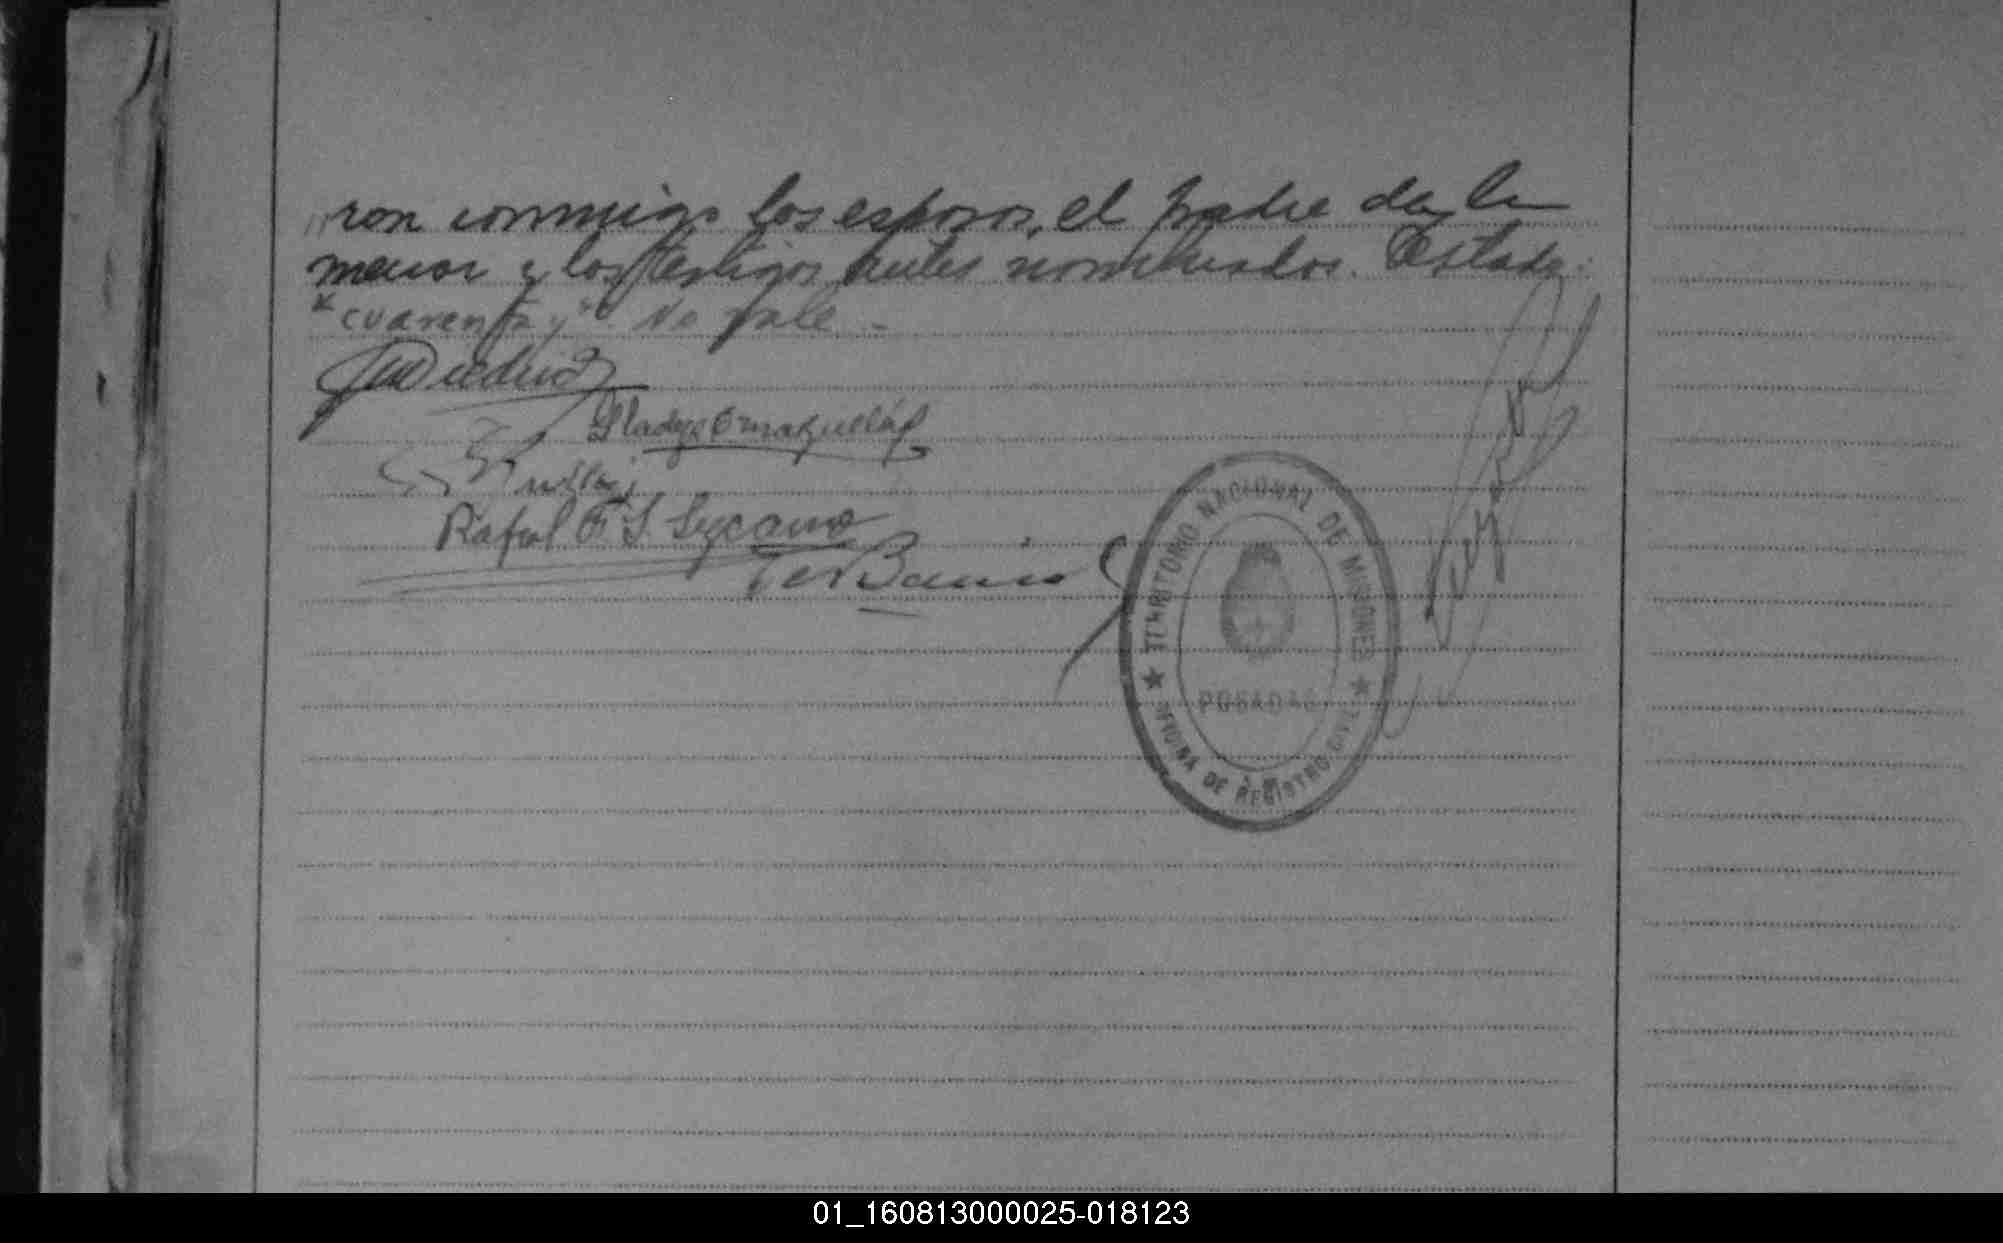 ron conmigo los esposos, el padre de la
menor y los testigos antes nombrados. Testado:
"cuarenta y". No vale -
Gladys Ormazuelás
Rafael F. S. Lezcano
TERRITORIO NACIONAL DE MISIONES
POSADAS
OFICINA DE REGISTRO CIVIL
01_160813000025-018123